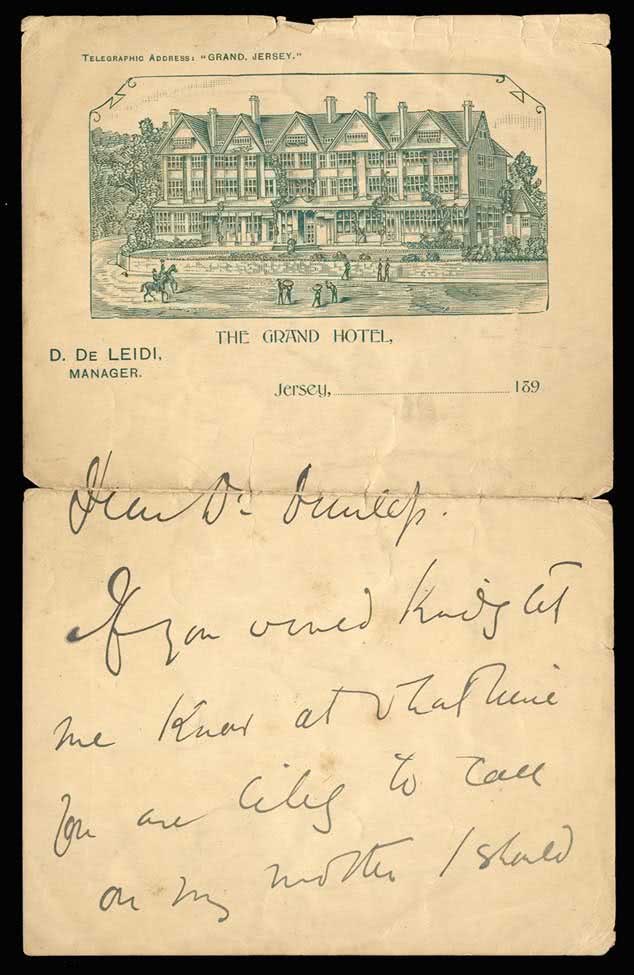 TELEGRAPHIC ADDRESS: "GRAND, JERSEY."
THE GRAND HOTEL,
D. DE LEIDI,
MANAGER.
Jersey, 189
Dear Dr Dunlop.
If you would kindly let
me know at what time
you are likely to call
on my mother I should